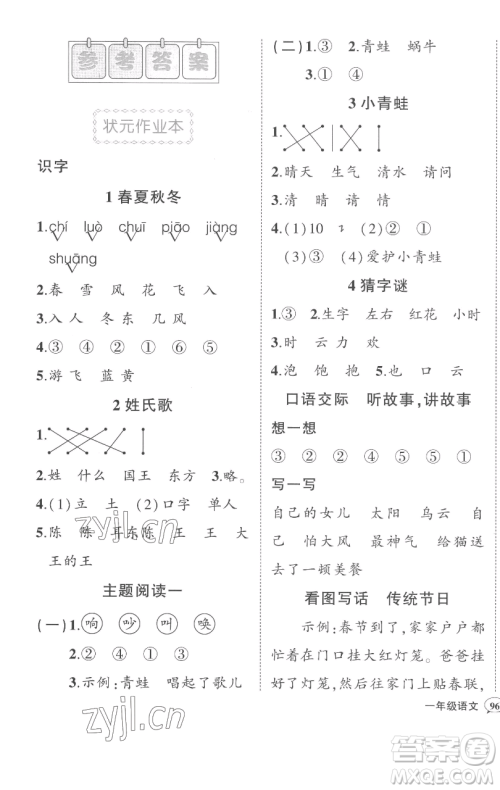 参考答案
状元作业本
识字
1 春夏秋冬
1.chí luò chuī piāo jiàng
shuāng
2.春 雪 风 花 飞 入
3.入人 冬东 几风
4.③ ④ ② ① ⑤
5.游飞 蓝黄
2 姓氏歌
1.
2.姓 什么 国王 东方 3.略。
4.(1)立 土 (2)口字 单人
5.陈 陈 耳东陈 王 王 大王的王
主题阅读一
(一)1.响 吵 叫 唤
2.② ④
3.示例:青蛙 唱起了歌儿
(二)1.③ 2.青蛙 蜗牛
3.① ④
3 小青蛙
1.
2.晴天 生气 清水 请问
3.清 晴 请 情
4.(1)10 (2)④ ② ①
(3)③ (4)爱护小青蛙
4 猜字谜
1.③ 2.生字 左右 红花 小时
3.时 云 力 欢
4.泡 饱 抱 也 口 云
口语交际 听故事,讲故事
想一想
③ ② ④ ⑤ ⑤ ①
写一写
自己的女儿 太阳 乌云 自己 怕大风 最厉害 给猫送去了一顿美餐
看图写话 传统节日
示例:春节到了,家家户户都
忙着在门口挂大红灯笼。爸爸挂
好灯笼,又和我一起贴春联,
一年级语文 96
答案圈
zyjl.cn
zyjl.cn
MXQE.COM